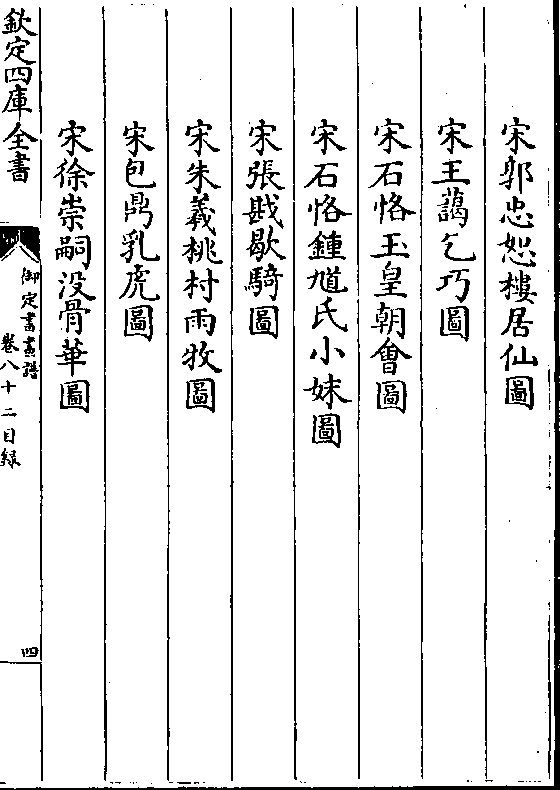 宋郭忠恕樓居仙圖
宋王藹乞巧圖
宋石恪玉皇朝會圖
宋石恪鍾馗氏小妹圖
宋張戡歇騎圖
宋朱羲桃村雨牧圖
宋包鼎乳虎圖
宋徐崇嗣没骨華圖
欽定四庫全書
御定書畫譜
卷八十二目録
四